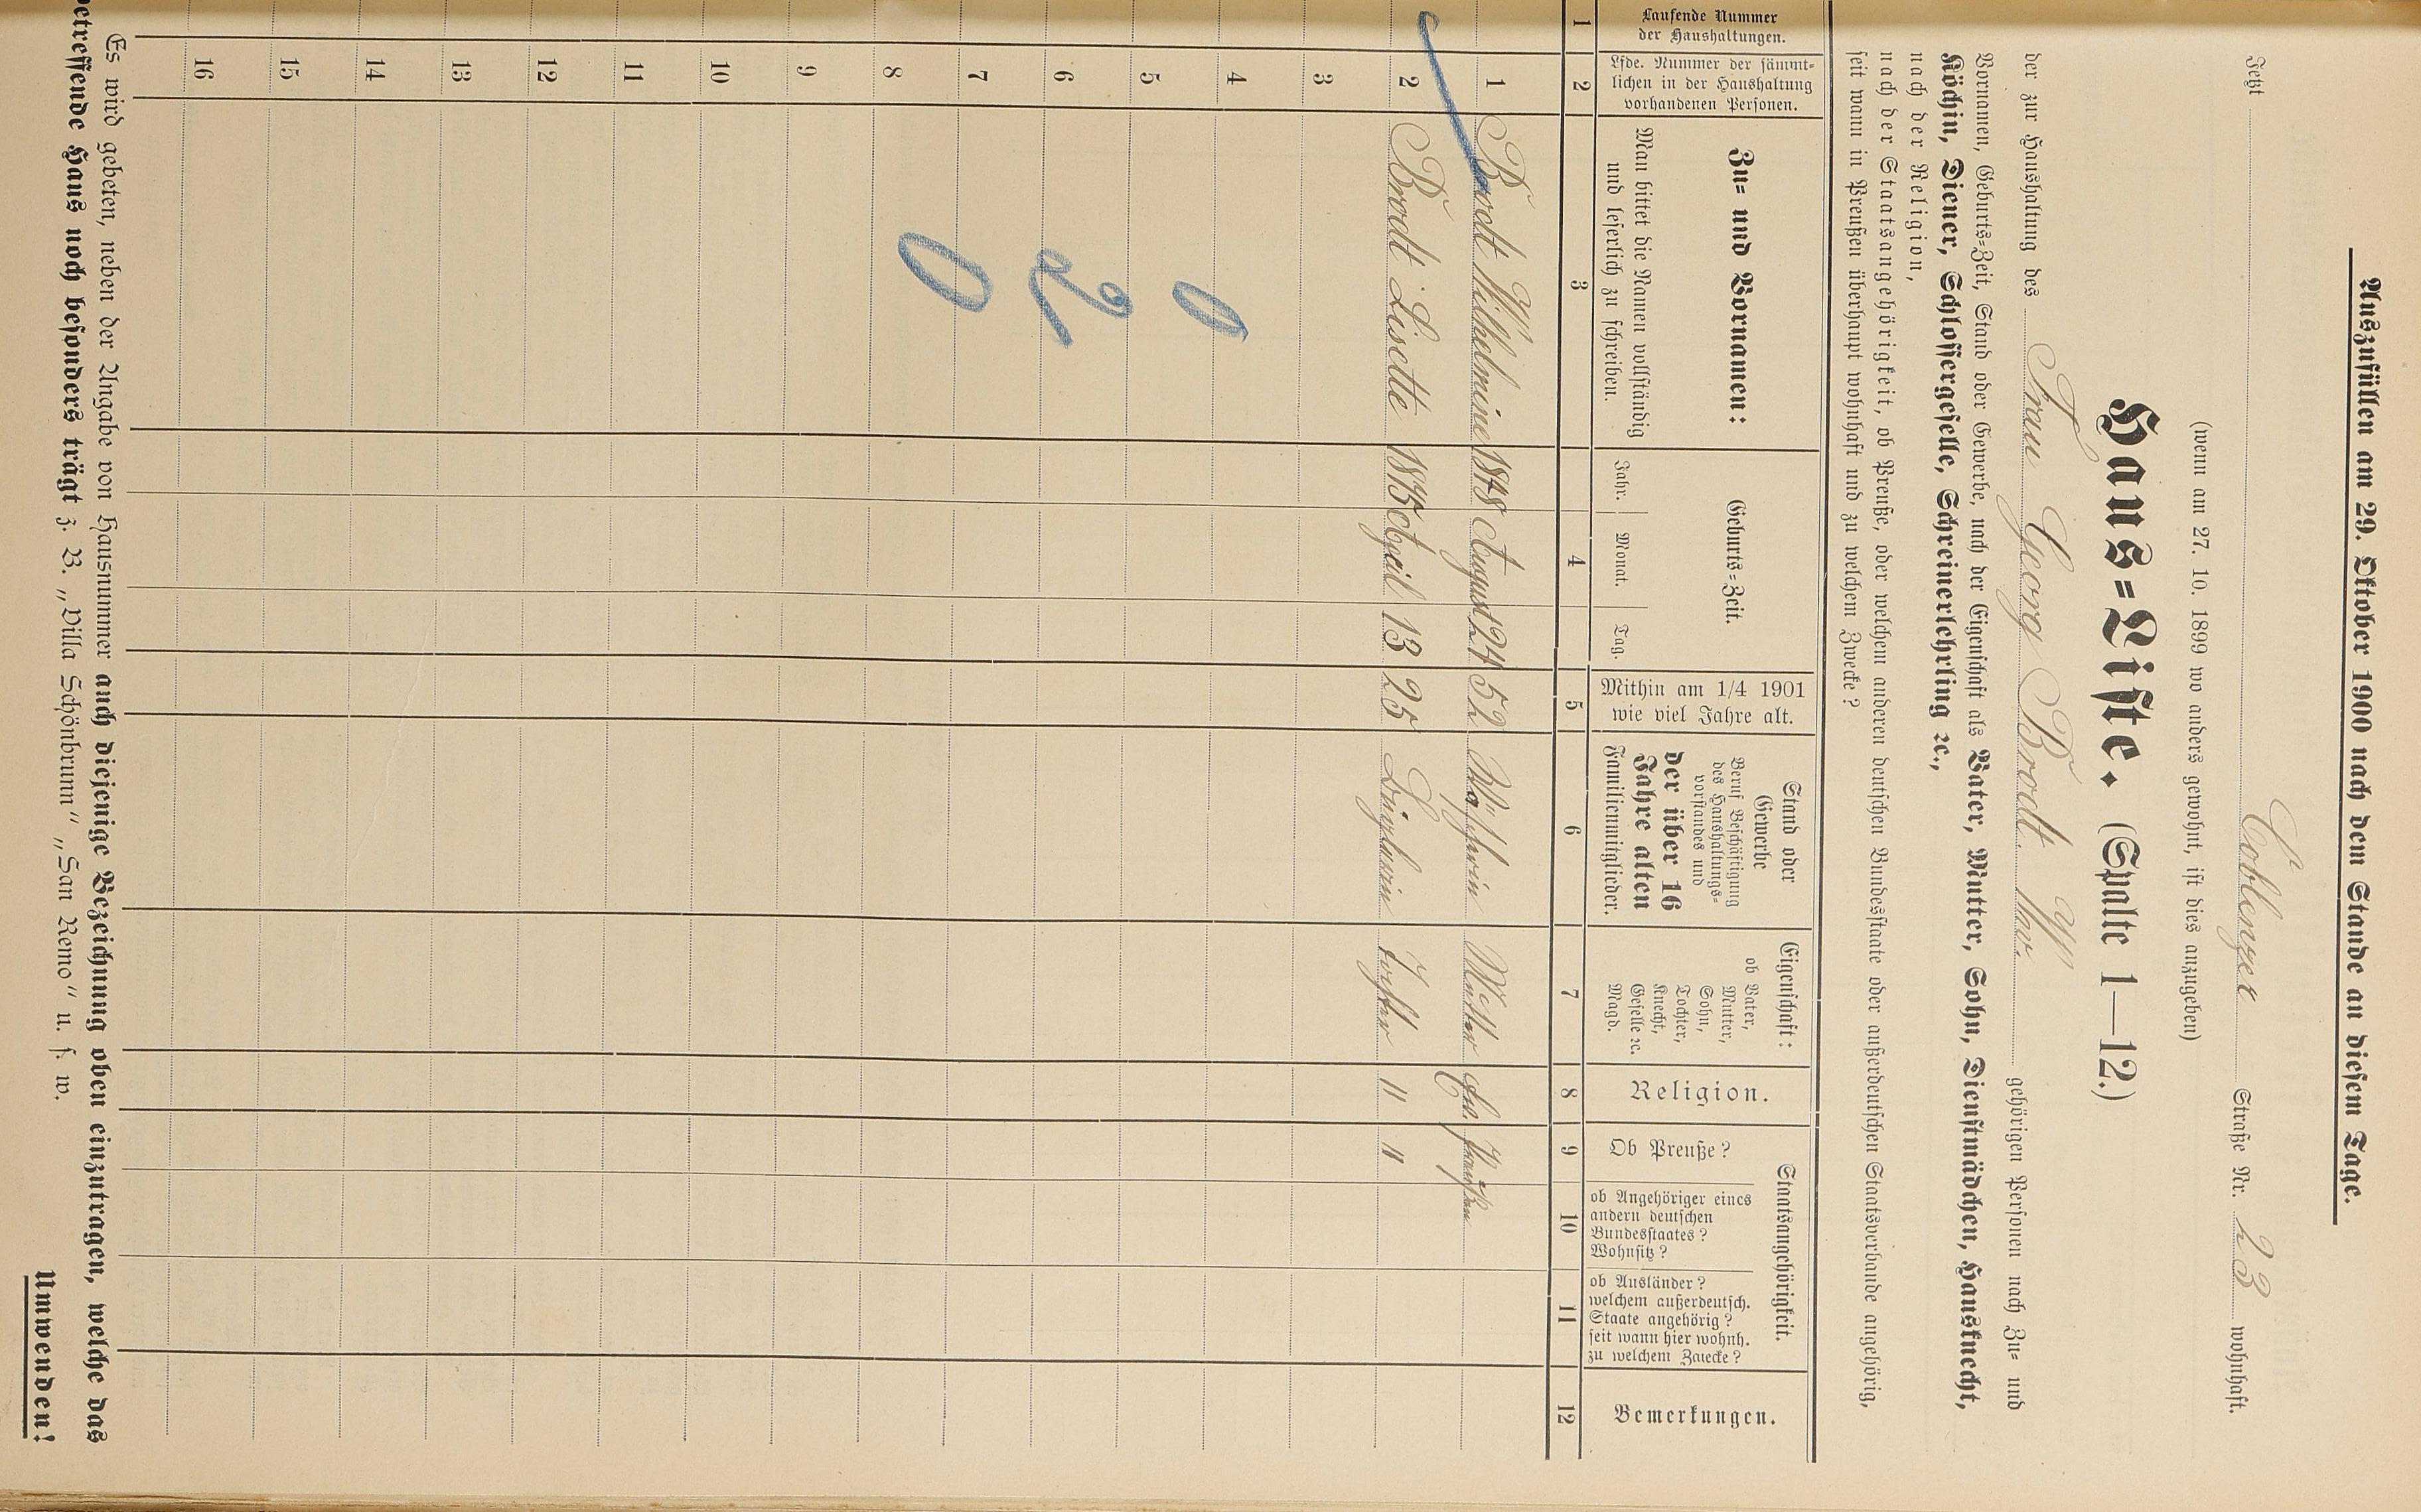 Auszufüllen am 29. Oktober 1900 nach dem Stande an diesem Tage.
Jetzt Coblenzer Straße Nr. 23 wohnhaft.
(wenn am 27. 10. 1899 wo anders gewohnt, ist dies anzugeben)
Haus-Liste. (Spalte 1—12.)
der zur Haushaltung des Frau Georg Brodt Ww. gehörigen Personen nach Zu- und
Vornamen, Geburts-Zeit, Stand oder Gewerbe, nach der Eigenschaft als Vater, Mutter, Sohn, Dienstmädchen, Hausknecht,
Köchin, Diener, Schlossergeselle, Schreinerlehrling ꝛc.,
nach der Religion,
nach der Staatsangehörigkeit, ob Preuße, oder welchem anderen deutschen Bundesstaate oder außerdeutschen Staatsverbande angehörig,
seit wann in Preußen überhaupt wohnhaft und zu welchem Zwecke?
Laufende Nummer
der Haushaltungen.
Lfde. Nummer der sämmt-
lichen in der Haushaltung
vorhandenen Personen.
Zu- und Vornamen:
Man bittet die Namen vollständig
und leserlich zu schreiben.
Geburts-Zeit.
Jahr. Monat. Tag.
Mithin am 1/4 1901
wie viel Jahre alt.
Stand oder
Gewerbe
Beruf Beschäftigung
des Haushaltungs-
vorstandes und
der über 16
Jahre alten
Familienmitglieder.
Eigenschaft:
ob Vater,
Mutter,
Sohn,
Tochter,
Knecht,
Geselle ꝛc.
Magd.
Religion.
Staatsangehörigkeit.
Ob Preuße?
ob Angehöriger eines
andern deutschen
Bundesstaates?
Wohnsitz?
ob Ausländer?
welchem außerdeutsch.
Staate angehörig?
seit wann hier wohnh.
zu welchem Zwecke?
Bemerkungen.
1 2 3 4 5 6 7 8 9 10 11 12
1 Brodt Wilhelmine 1848 August 24 52 Mutter Ev. Preußen
2 Brodt Lisette 1875 April 13 25 Tochter " "
3
4
5
6
7
8
9
10
11
12
13
14
15
16
0
2
0
Es wird gebeten, neben der Angabe von Hausnummer auch diejenige Bezeichnung oben einzutragen, welche das
betreffende Haus noch besonders trägt z. B. „Villa Schönbrunn“ „San Remo“ u. s. w.
Umwenden!